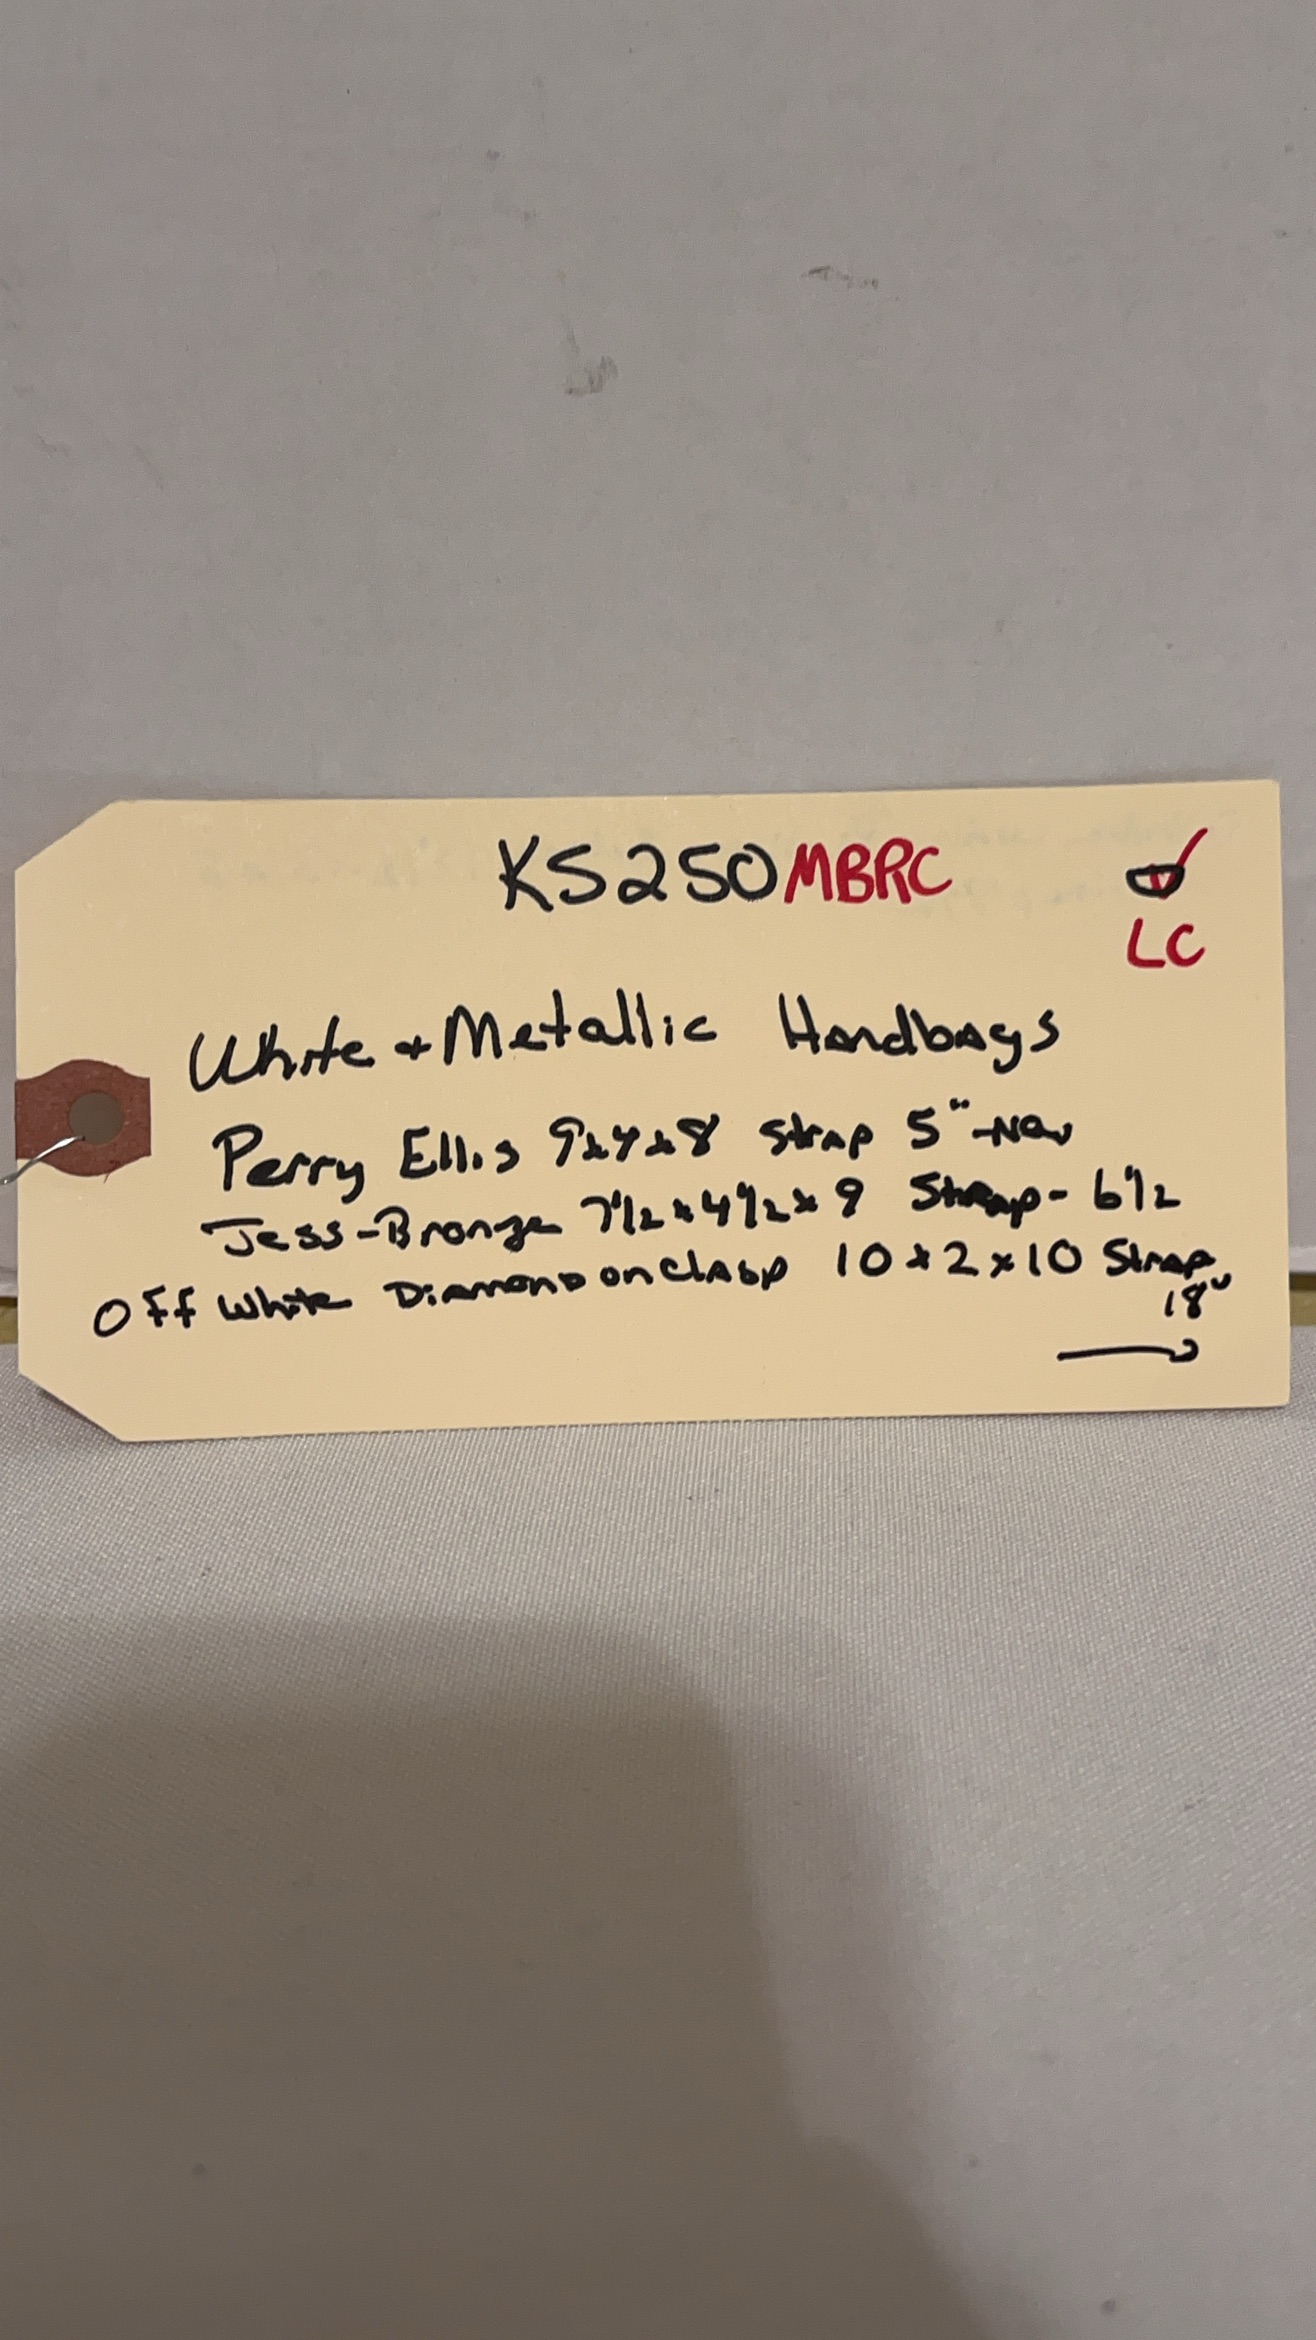 KS250MBRC
LC
White + Metallic Handbags
Perry Ellis 9x4x8 Strap 5"-New
Jess-Bronze 7 1/2 x 4 1/2 x 9 Strap - 6 1/2
Off White Diamond on Clasp 10 x 2 x 10 Strap
18"